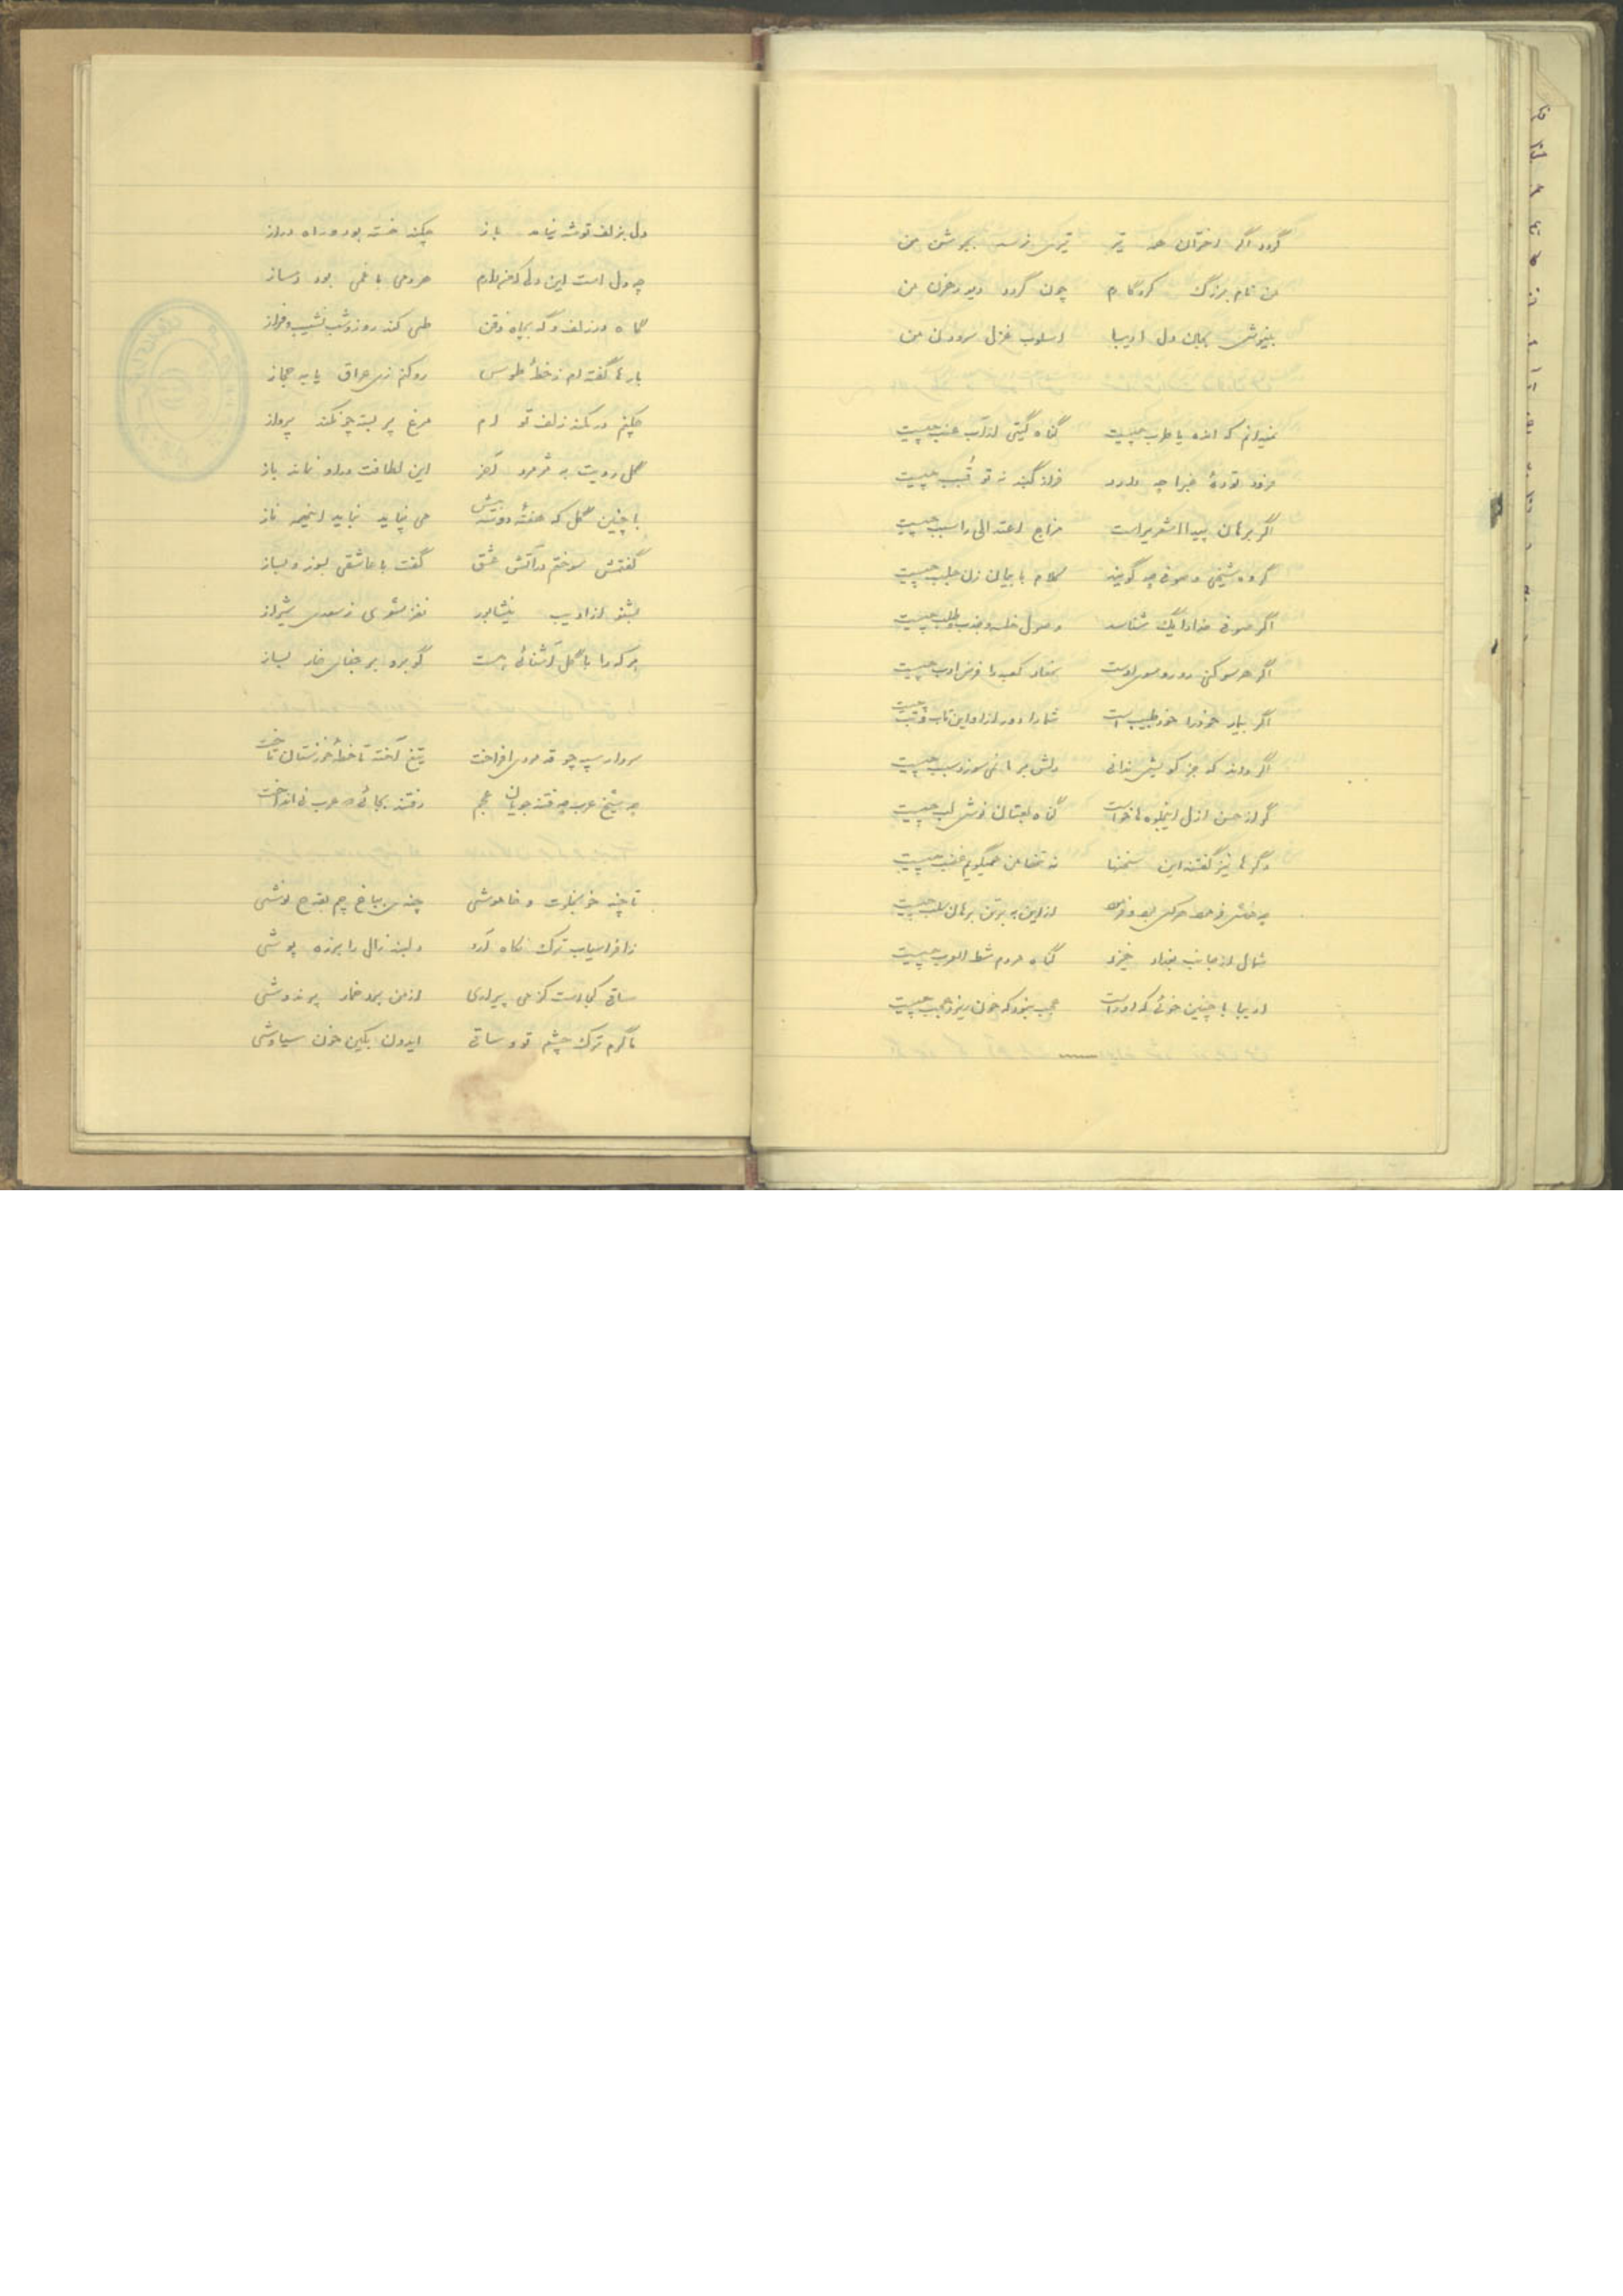 گردد اگر اختران همه تیر تیری نرسد بجوشن من
من نام بزرگ کردگارم چون گردد دیو رهزن من
بنیوش بجان و دل ادیبا اسلوب غزل سرودن من
نمیدانم که اندُه یا طرب چیست گناه گیتی از آب عنب چیست
فرود تودهٔ غبرا چه دارد فراز گنبد نه تو قُبَب چیست
اگر برهان پیدا اشعریراست مزاج اعتدالی را سبب چیست
گروه شیخی و صوفی چه گویند کلام با بیان زن جلب چیست
اگر صوفی خدا را نیک شناسد وصول خلسه و جذب و طلب چیست
اگر هر سو کنی رو روی سوی اوست مفاد کعبه را فرض ادب چیست
اگر بیمار خود را خود طبیب است شما را دور ازاو این تاب و تب چیست
اگر داند که جز کویش ندانی دلش بر ما نمی سوزد سبب چیست
گر از حسن ازل این جلوه ها خواست گناه لعبتان نوش لب چیست
دگرها نیز گفتند این سخنها نه تنها من همیگویم غضب چیست
از این به برترین برهان سلب چیست
شمال از جانب بغداد خیزد گناه مردم شط العرب چیست
ادیبا با چنین خوئی که او راست عجب نبود که خون ریزد عجب چیست
دل بزلف تو شد نیامد باز چکند خسته بود و راه دراز
چه دل است این دلی که من دارم هر دمی با غمی بود دمساز
گاه در زلف و گه بچاه ذقن طی کند روز و شب نشیب و فراز
بارها گفته ام ز خطهٔ طوس رو کنم زی عراق یا به حجاز
چکنم در کمند زلف تو ام مرغ پر بسته چون کند پرواز
گل رویت به پژمرد آخر این لطافت در او نماند باز
با چنین گل که هفتهٔ دو بیش می نپاید نباید اینهمه ناز
گفتمش سوختم در آتش عشق گفت با عاشقی بسوز و بساز
بشنو از ادیب نیشابور نغز شعری ز سعدی شیراز
هر که را با گل آشنائی هست گو برو بر جفای خار بساز
سردار سپه چو قد مردی افراخت تیغ آخته تا خطهٔ خوزستان تاخت
چه شیخ عرب چه فتنه جویان عجم رفتند بجائی که عرب نی انداخت
تا چند خو بخلوت و خاموشی چندی بباغ چم بقدح نوشی
زافراسیاب ترک نگاه آرد دلبند زال را بزره پوشی
ساقی کجاست کز می پیراری از من برد خمار پرندوشی
ناگرم ترک چشم تو و ساقی ایدون بکین خون سیاوشی